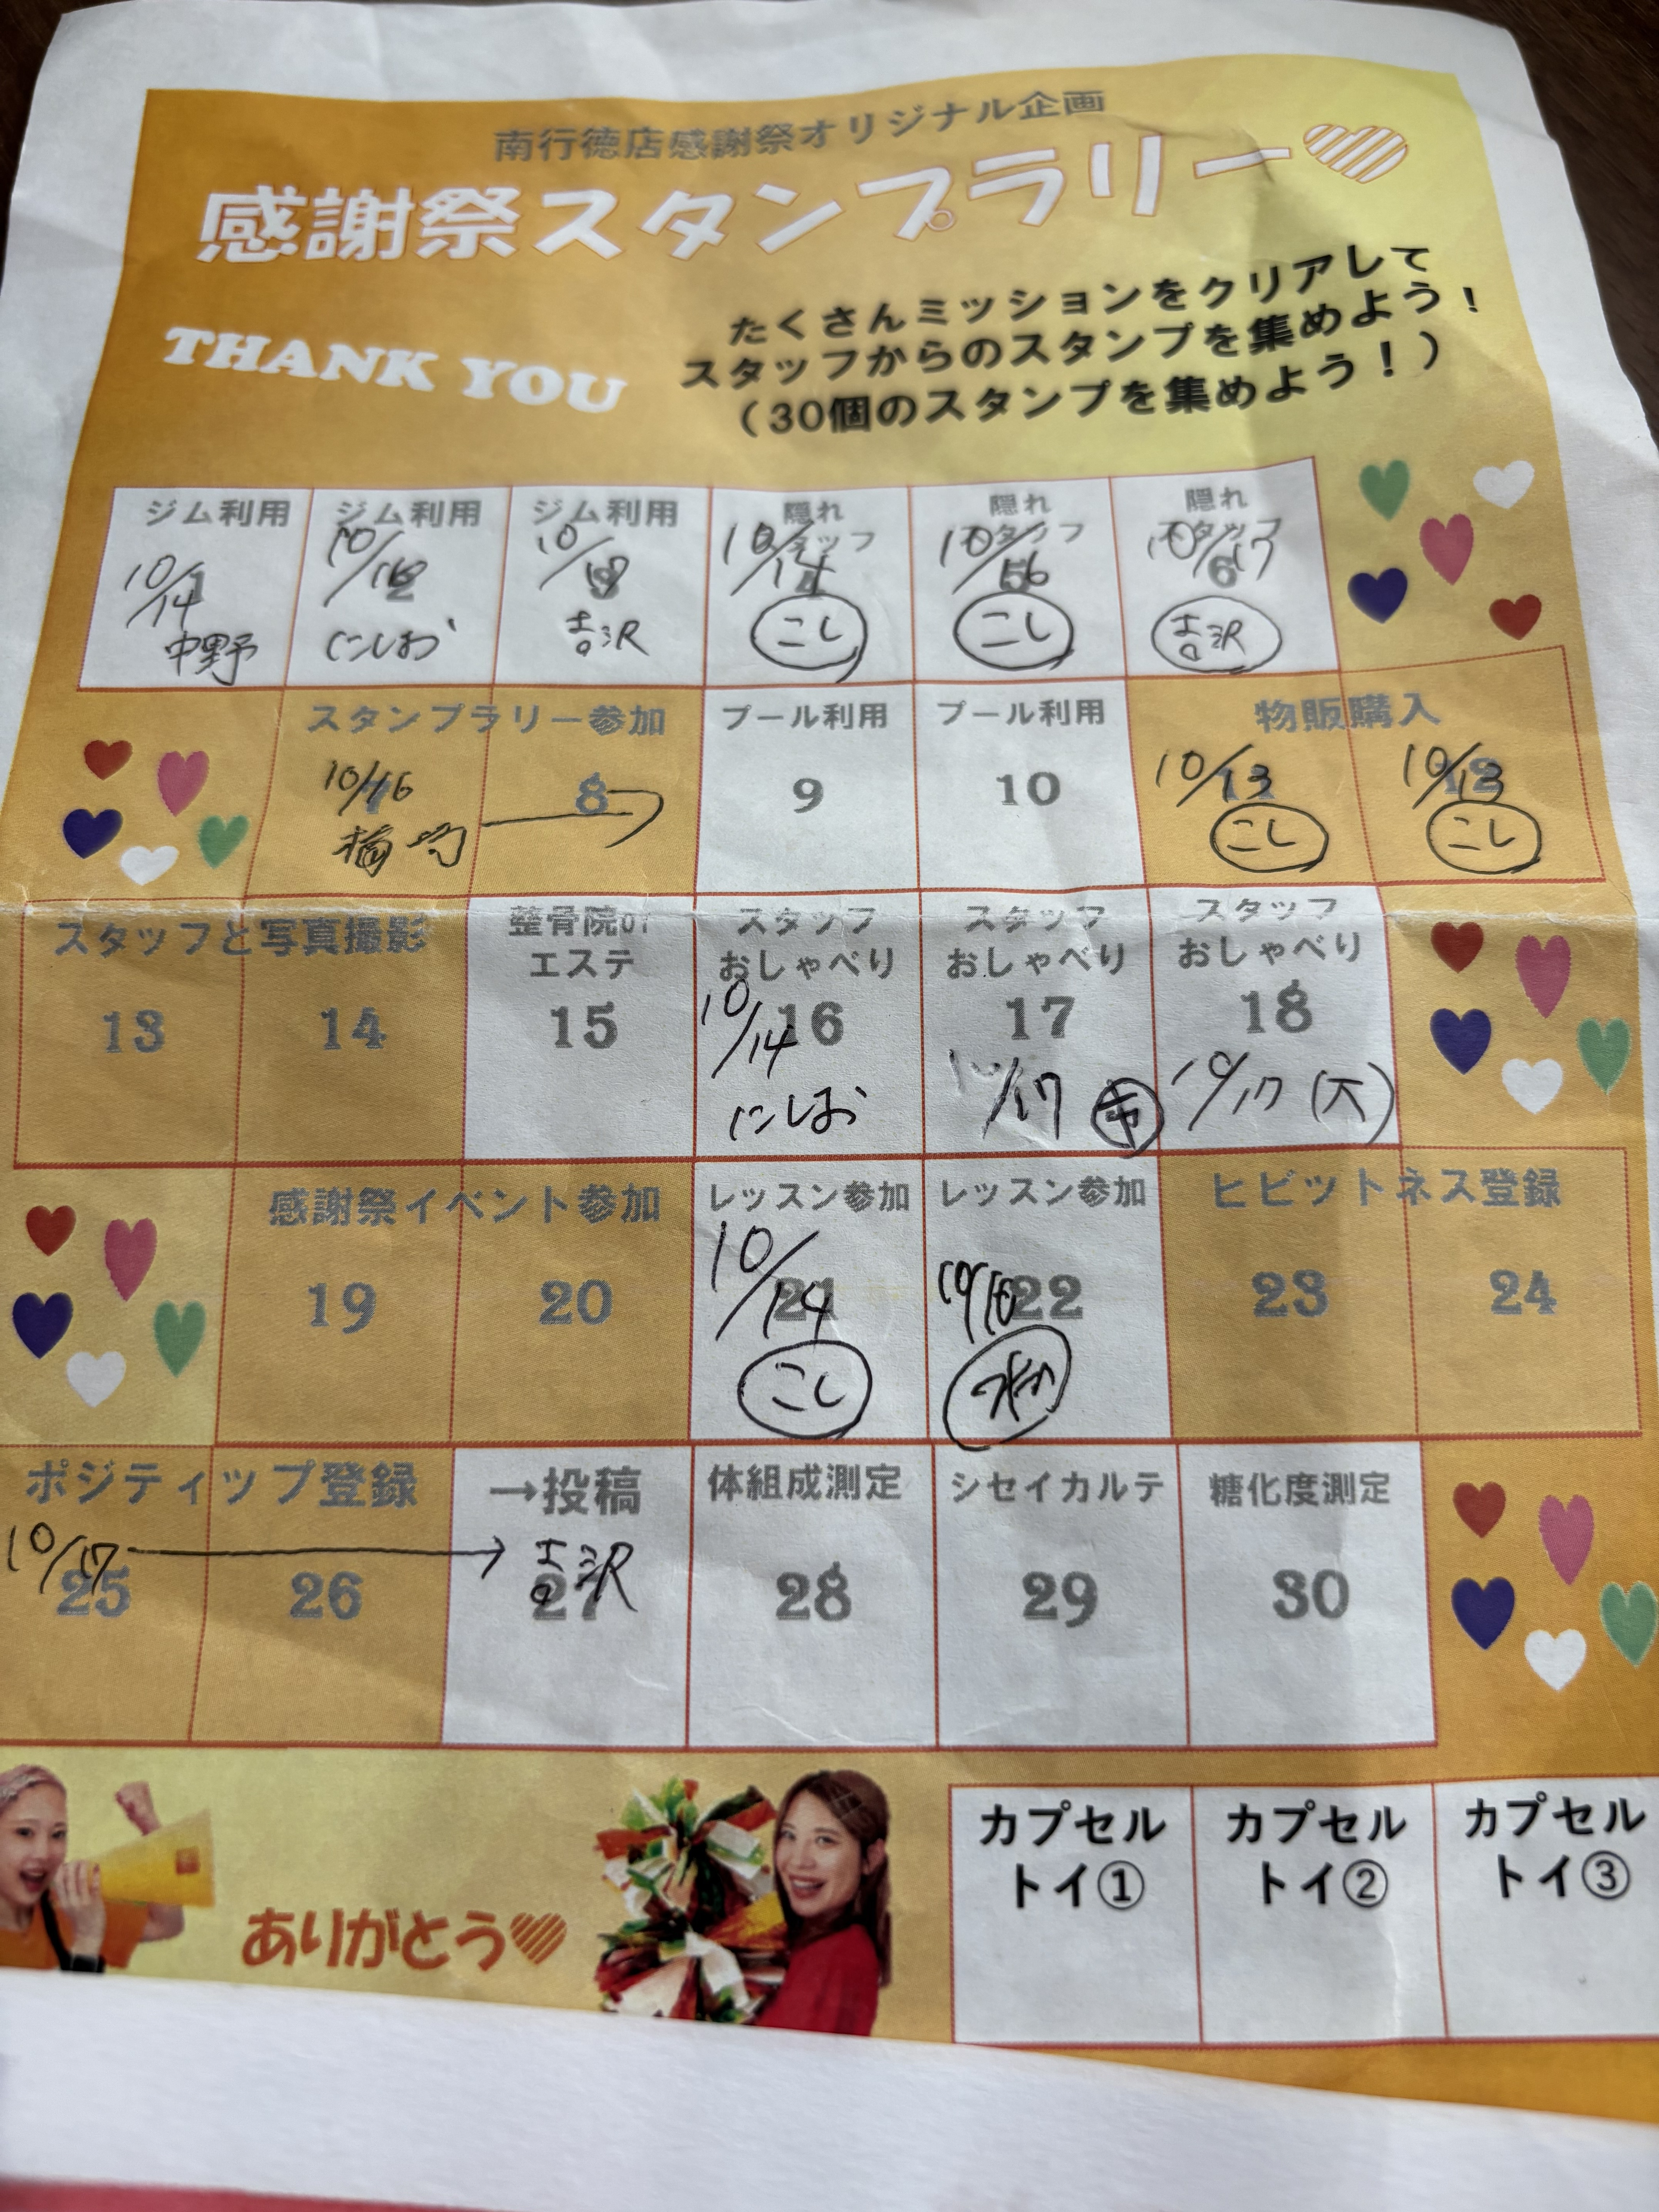 南行徳店感謝祭オリジナル企画
感謝祭スタンプラリー
THANK YOU
たくさんミッションをクリアして
スタッフからのスタンプを集めよう！
（30個のスタンプを集めよう！）
ジム利用 ジム利用 ジム利用 隠れ 隠れ 隠れ
スタッフ スタッフ スタッフ
1 2 3 4 5 6
10/14 10/16 10/14 10/17
中野 にしお 吉沢 こし こし 吉沢
スタンプラリー参加 プール利用 プール利用 物販購入
7 8 9 10 11 12
10/16 10/13 10/13
こし こし
スタッフと写真撮影 整骨院or スタッフ スタッフ スタッフ
エステ おしゃべり おしゃべり おしゃべり
13 14 15 16 17 18
10/14 10/17 10/17
にしお
感謝祭イベント参加 レッスン参加 レッスン参加 ヒビットネス登録
19 20 21 22 23 24
10/14
こし
ポジティップ登録 →投稿 体組成測定 シセイカルテ 糖化度測定
10/17 吉沢
25 26 27 28 29 30
ありがとう
カプセル カプセル カプセル
トイ① トイ② トイ③